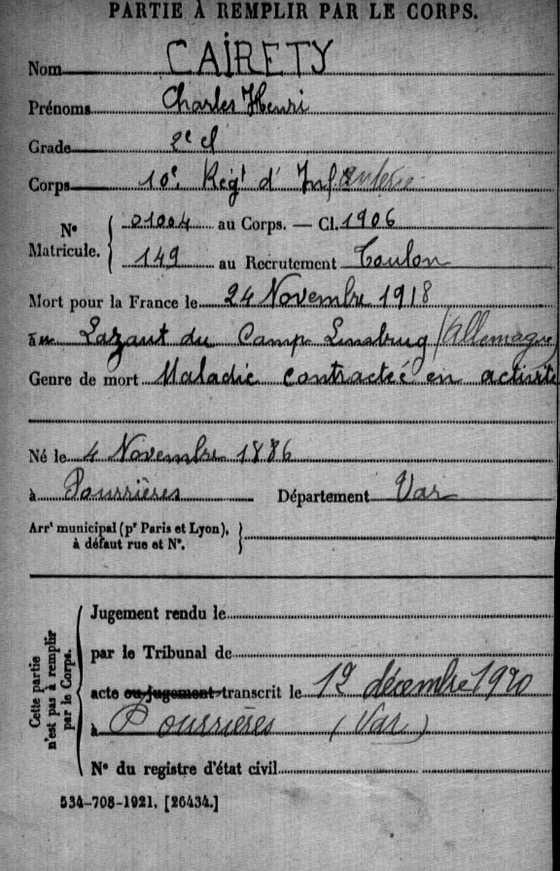 PARTIE À REMPLIR PAR LE CORPS.
Nom CAIRETY
Prénoms Charles Henri
Grade 2e cl
Corps 10e. Régt d' Infanterie
No Matricule. { 01004 au Corps. — Cl. 1906
149 au Recrutement Toulon
Mort pour la France le 24 Novembre 1918
au Lazaut du Camp (Allemagne)
Genre de mort Maladie contracteé en activité
Né le 4 Novembre 1886
à Pourrières Département Var
Arrt municipal (pr Paris et Lyon),
à défaut rue et No.
Cette partie
n'est pas à remplir
par le Corps.
Jugement rendu le
par le Tribunal de
acte ou jugement transcrit le 12 décembre 1920
à Pourrières (Var)
No du registre d'état civil
534-708-1921. [26434.]